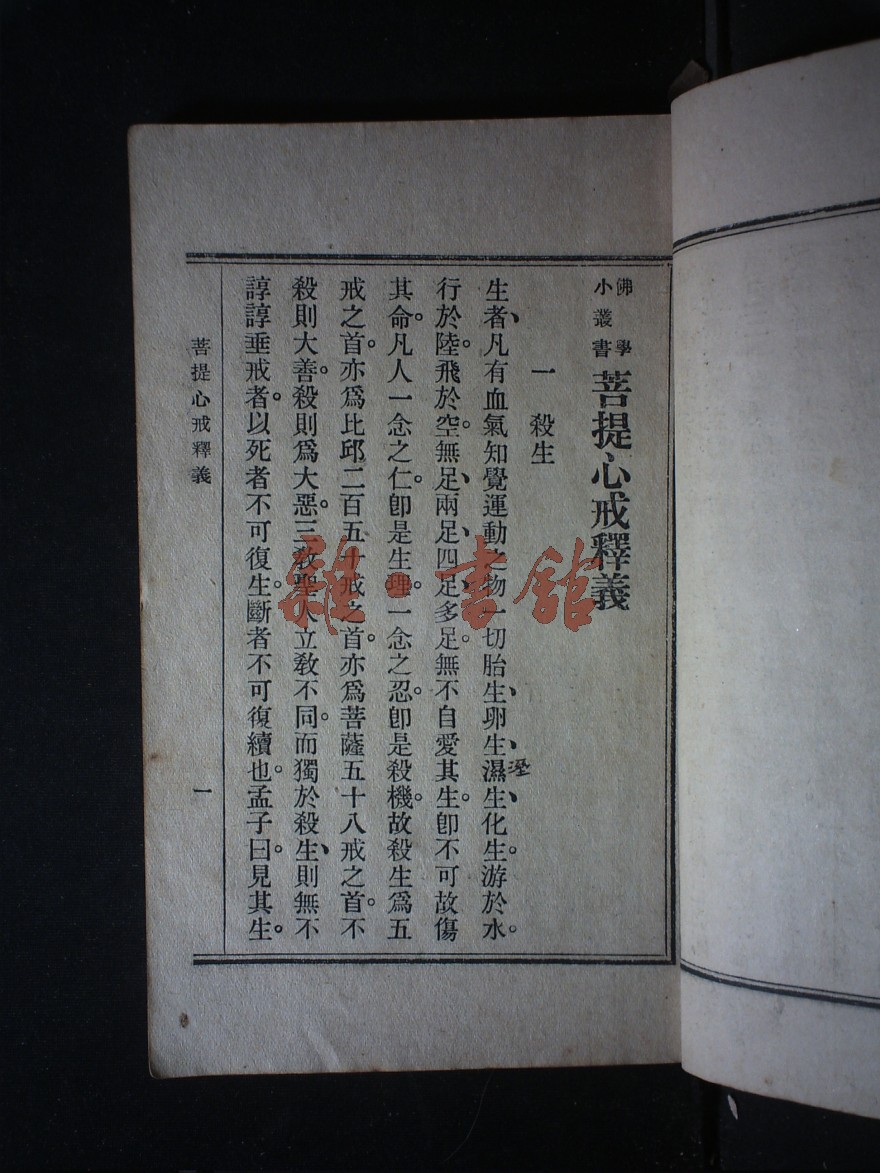 佛學小叢書 菩提心戒釋義
一 殺生
生者、凡有血氣知覺運動之物一切胎生、卵生、濕生、化生。游於水。
溼
行於陸。飛於空。無足、兩足、四足、多足。無不自愛其生。卽不可故傷
其命。凡人一念之仁。卽是生理。一念之忍。卽是殺機。故殺生爲五
戒之首。亦爲比邱二百五十戒之首。亦爲菩薩五十八戒之首。不
殺則大善。殺則爲大惡。三敎聖人立敎不同。而獨於殺生、則無不
諄諄垂戒者。以死者不可復生。斷者不可復續也。孟子曰。見其生。
菩提心戒釋義
一
雜·書館